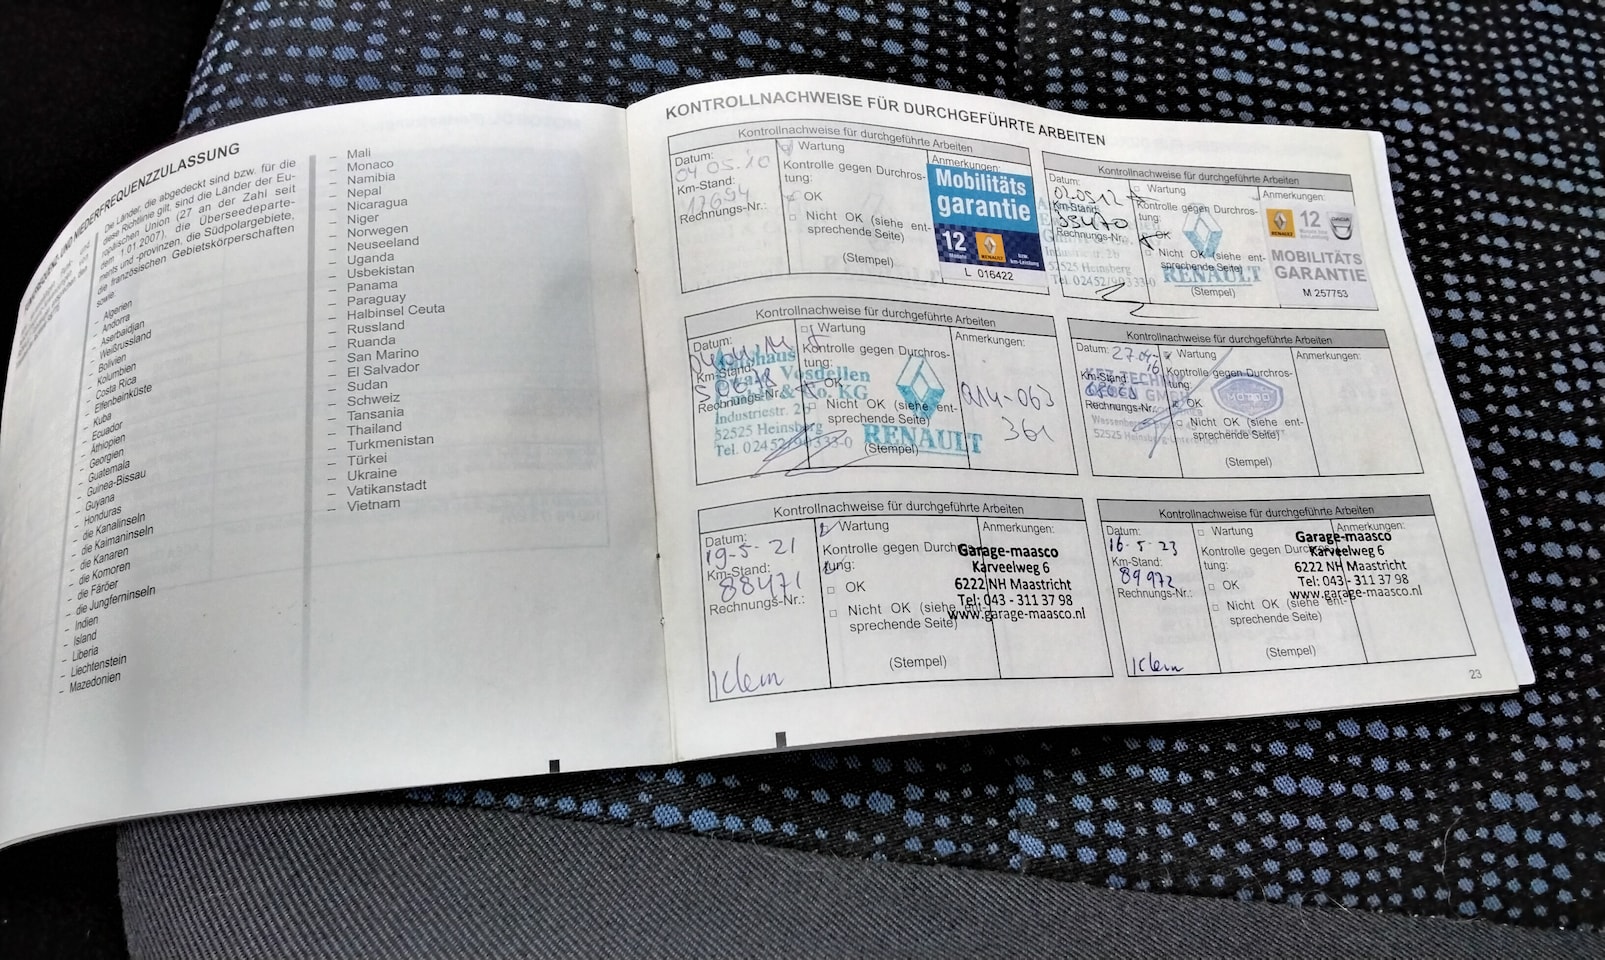 UND NIEDERFREQUENZZULASSUNG
Die Länder, die abgedeckt sind bzw. für die
diese Richtlinie gilt, sind die Länder der Eu-
ropäischen Union (27 an der Zahl seit
dem 1.01.2007), die Überseedeparte-
ments und -provinzen, die Südpolargebiete,
die französischen Gebietskörperschaften
sowie:
– Algerien
– Andorra
– Aserbaidjan
– Weißrussland
– Bolivien
– Kolumbien
– Costa Rica
– Elfenbeinküste
– Kuba
– Ecuador
– Äthiopien
– Georgien
– Guatemala
– Guinea-Bissau
– Guyana
– Honduras
– die Kanalinseln
– die Kaimaninseln
– die Kanaren
– die Komoren
– die Färöer
– die Jungferninseln
– Indien
– Island
– Liberia
– Liechtenstein
– Mazedonien
– Mali
– Monaco
– Namibia
– Nepal
– Nicaragua
– Niger
– Norwegen
– Neuseeland
– Uganda
– Usbekistan
– Panama
– Paraguay
– Halbinsel Ceuta
– Russland
– Ruanda
– San Marino
– El Salvador
– Sudan
– Schweiz
– Tansania
– Thailand
– Turkmenistan
– Türkei
– Ukraine
– Vatikanstadt
– Vietnam
KONTROLLNACHWEISE FÜR DURCHGEFÜHRTE ARBEITEN
Kontrollnachweise für durchgeführte Arbeiten
Datum:
04 05.10
Km-Stand:
17694
Rechnungs-Nr.:
Wartung
Kontrolle gegen Durchros-
tung:
OK
Nicht OK (siehe ent-
sprechende Seite)
(Stempel)
Anmerkungen:
Mobilitäts
garantie
12 RENAULT
Monate
km-Leistung
L 016422
Kontrollnachweise für durchgeführte Arbeiten
Datum:
02.05.12
Km-Stand:
35470
Rechnungs-Nr.:
Wartung
Kontrolle gegen Durchros-
tung:
OK
Nicht OK (siehe ent-
sprechende Seite)
(Stempel)
Industriestr. 2b
52525 Heinsberg
Tel. 02452/90333-0
RENAULT
Anmerkungen:
RENAULT 12 DACIA
MOBILITÄTS
GARANTIE
M 257753
Kontrollnachweise für durchgeführte Arbeiten
Datum:
Km-Stand:
Rechnungs-Nr.:
Wartung
Kontrolle gegen Durchros-
tung:
OK
Nicht OK (siehe ent-
sprechende Seite)
(Stempel)
Autohaus
Vosdellen
& Co. KG
Industriestr. 2b
52525 Heinsberg
Tel. 02452/90333-0
RENAULT
Anmerkungen:
014-063
361
Kontrollnachweise für durchgeführte Arbeiten
Datum: 27.04.
16
Km-Stand:
Rechnungs-Nr.:
Wartung
Kontrolle gegen Durchros-
tung:
OK
Nicht OK (siehe ent-
sprechende Seite)
(Stempel)
KFZ-TECHNIK
GMBH
52525 Heinsberg
MOTOO
Anmerkungen:
Kontrollnachweise für durchgeführte Arbeiten
Datum:
19-5-21
Km-Stand:
88471
Rechnungs-Nr.:
Klein
Wartung
Kontrolle gegen Durchros-
tung:
OK
Nicht OK (siehe ent-
sprechende Seite)
(Stempel)
Anmerkungen:
Garage-maasco
Karveelweg 6
6222 NH Maastricht
Tel: 043 - 311 37 98
www.garage-maasco.nl
Kontrollnachweise für durchgeführte Arbeiten
Datum:
16-5-23
Km-Stand:
89972
Rechnungs-Nr.:
Klein
Wartung
Kontrolle gegen Durchros-
tung:
OK
Nicht OK (siehe ent-
sprechende Seite)
(Stempel)
Anmerkungen:
Garage-maasco
Karveelweg 6
6222 NH Maastricht
Tel: 043 - 311 37 98
www.garage-maasco.nl
23